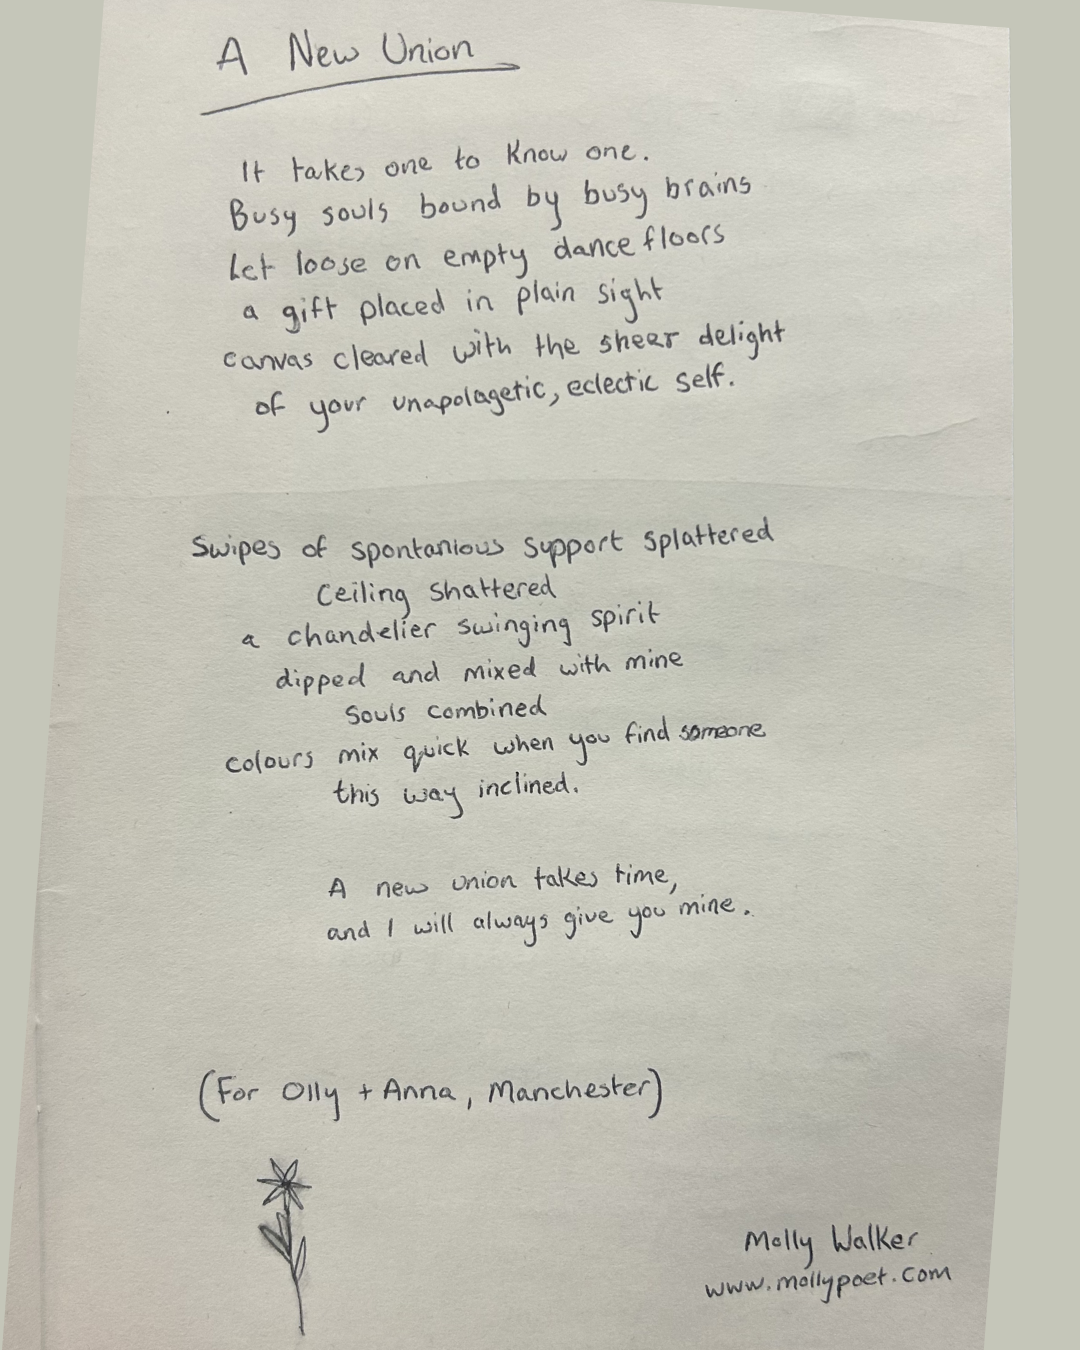 A New Union
It takes one to know one.
Busy souls bound by busy brains
Let loose on empty dance floors
a gift placed in plain sight
canvas cleared with the sheer delight
of your unapolagetic, eclectic self.
Swipes of spontanious support splattered
Ceiling shattered
a chandelier swinging spirit
dipped and mixed with mine
Souls combined
colours mix quick when you find someone
this way inclined.
A new union takes time,
and I will always give you mine.
(For Olly + Anna, Manchester)
Molly Walker
www.mollypoet.com